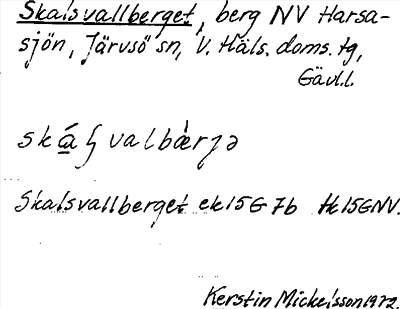 Skalsvallberget, berg NV Harsa-
sjön, Järvsö sn, V. Häls. doms. tg,
Gävl.l.
Skalsvallberget ek 15G 7b Hk 15GNV.
Kerstin Mickelsson 1972.